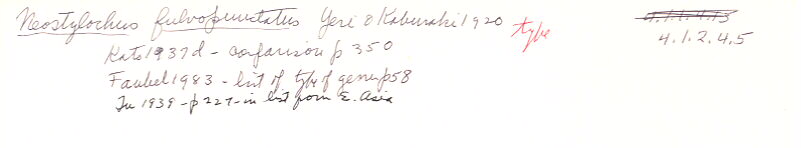 Neostylochus fulvopunctatus Yeri & Kaburaki 1920 type
4.1.1.4.13
4.1.2.4.5
Kato 1937d - comparison p 350
Faubel 1983 - list of type of genus p58
Tu 1939 - p 227 - in list from E. Asia